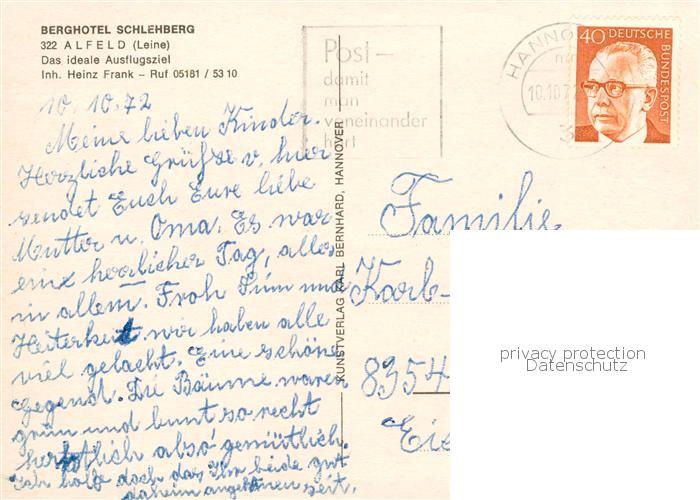 BERGHOTEL SCHLEHBERG
322 ALFELD (Leine)
Das ideale Ausflugsziel
Inh. Heinz Frank – Ruf 05181 / 53 10
Post –
damit
man
voneinander
hört
HANNO
10.10.7
40 DEUTSCHE
BUNDESPOST
10.10.72
Meine lieben Kinder.
Herzliche Grüße v. hier
sendet Euch Eure liebe
Mutter u. Oma. Es war
ein herrlicher Tag, alles
in allem. Froh Sinn und
Heiterkeit wir haben alle
viel gelacht. Eine schöne
Gegend. Die Bäume waren
grün und bunt so recht
herbstlich also gemütlich.
Ich hoffe doch das Ihr beide gut
daheim angekommen seit.
KUNSTVERLAG KARL BERNHARD, HANNOVER
Familie
Karb-
8354
Ei
privacy protection
Datenschutz